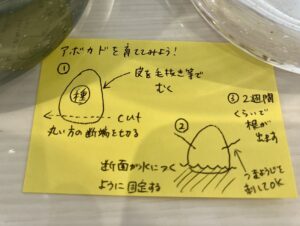 アボカドを育ててみよう!
①
種
皮を毛抜き等で
むく
cut
丸い方の断端を切る
②
断面が水につく
ように固定する
③ 2週間
くらいで
根が
出ます
つまようじを
刺してOK